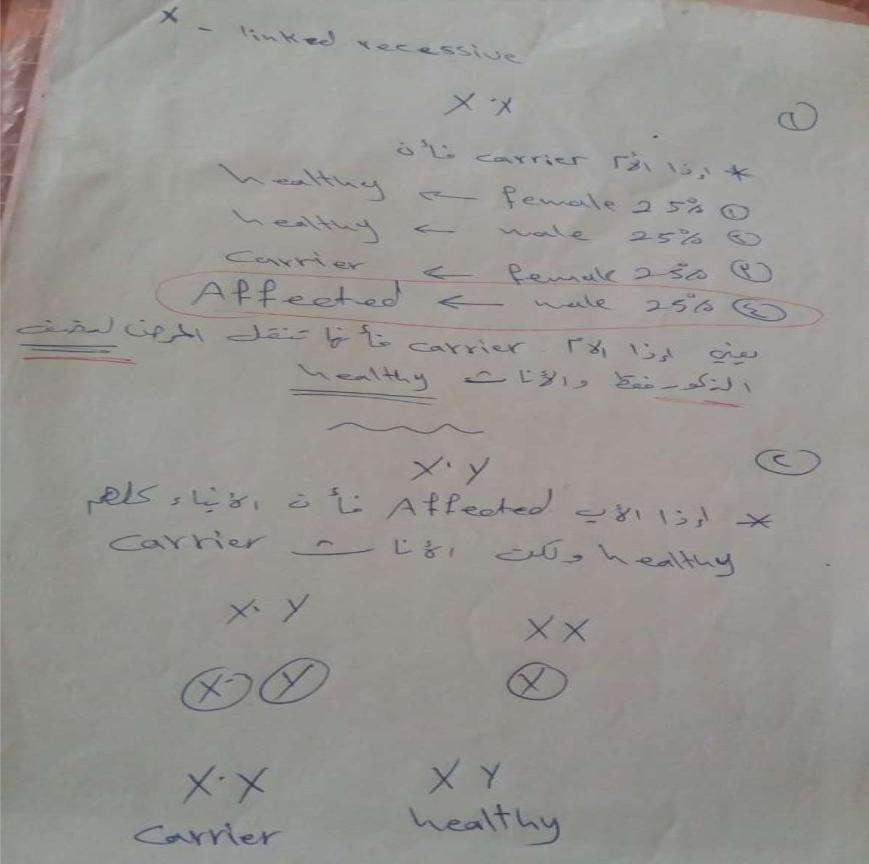 X - linked recessive
X·X ①
* إذا الأم carrier فأن
① 25% female ← healthy
② 25% male ← healthy
③ 25% female ← Carrier
④ 25% male ← Affected
يعني إذا الام carrier فأنها تنقل المرض لنصف
الذكور فقط والأناث healthy
X·Y ②
* إذا الأب Affected فأن الأبناء كلهم
healthy ولكن الأناث Carrier
X·Y XX
X· Y X
X·X XY
Carrier healthy